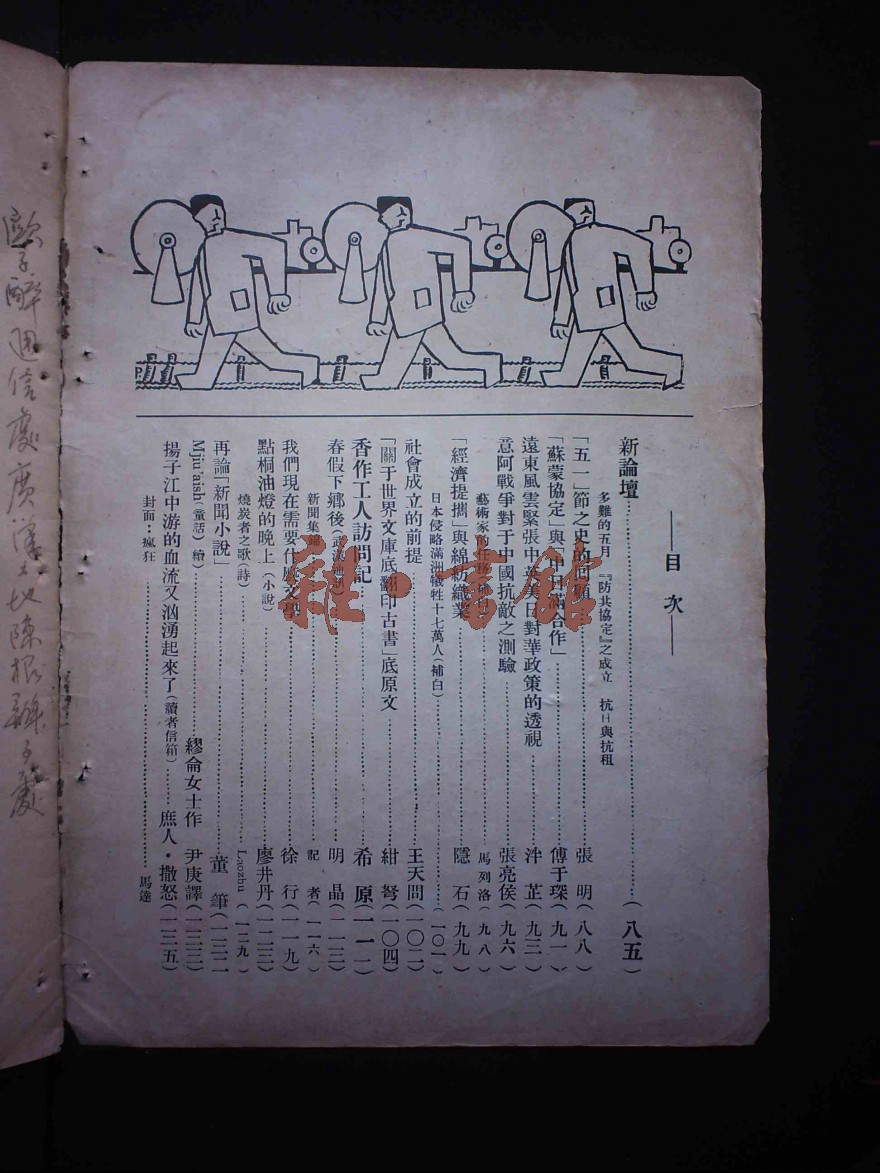 ——目次——
新論壇……(八五)
多難的五月 『防共協定』之成立 抗日與抗租
「五一」節之史的回顧……張明(八八)
「蘇蒙協定」與「中日滿合作」……傅于琛(九一)
遠東風雲緊張中英美日對華政策的透視……泮芷(九三)
意阿戰爭對于中國抗敵之測驗……張亮侯(九六)
藝術家的任務……馬列洛(九八)
「經濟提攜」與綿紡織業……隱石(九九)
日本侵略滿洲犧牲十七萬人(補白)……(一〇一)
社會成立的前提……王天問(一〇二)
「關于世界文庫底翻印古書」底原文……紺弩(一〇四)
香作工人訪問記……希原(一一一)
春假下鄉後……明晶(一一三)
新聞集錦……記者(一一六)
我們現在需要什麼文學……徐行(一一九)
點桐油燈的晚上(小說)……廖井丹(一二三)
燒炭者之歌(詩)……Laozhu(一二九)
再論「新聞小說」……董筆(一三二)
Mjiu'aish(童話)續)……繆倫女士作 尹庚譯(一三三)
揚子江中游的血流又洶湧起來了(讀者信箱)……庶人・撒怒(一三五)
封面:瘋狂……馬達
雜・書館